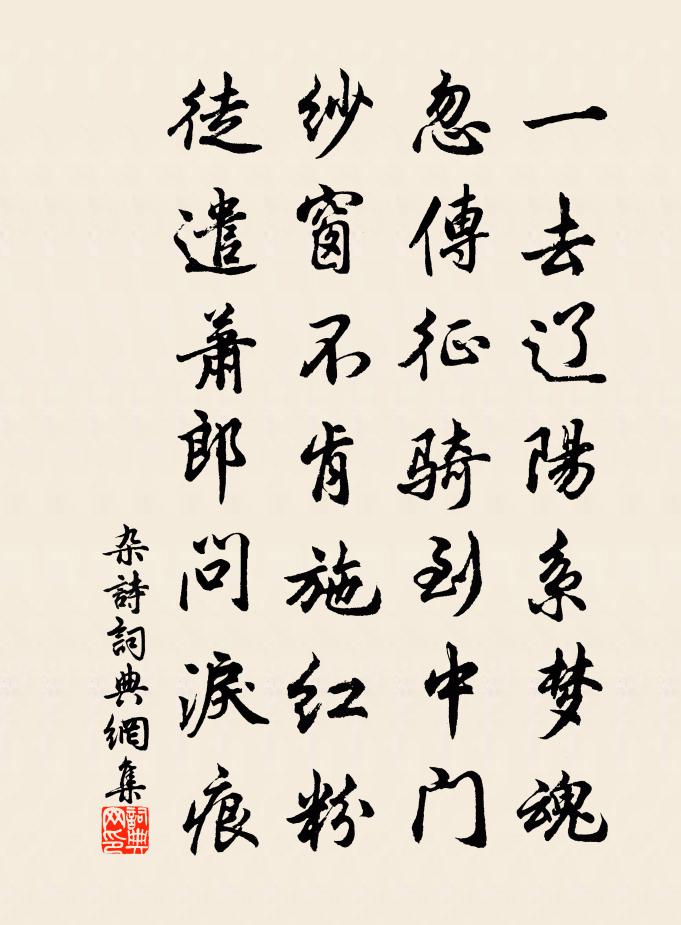 一去辽陽系梦魂
忽傳征骑到中门
纱窗不肯施红粉
徒遣萧郎问淚痕
杂詩詞典網集
詞典
网印